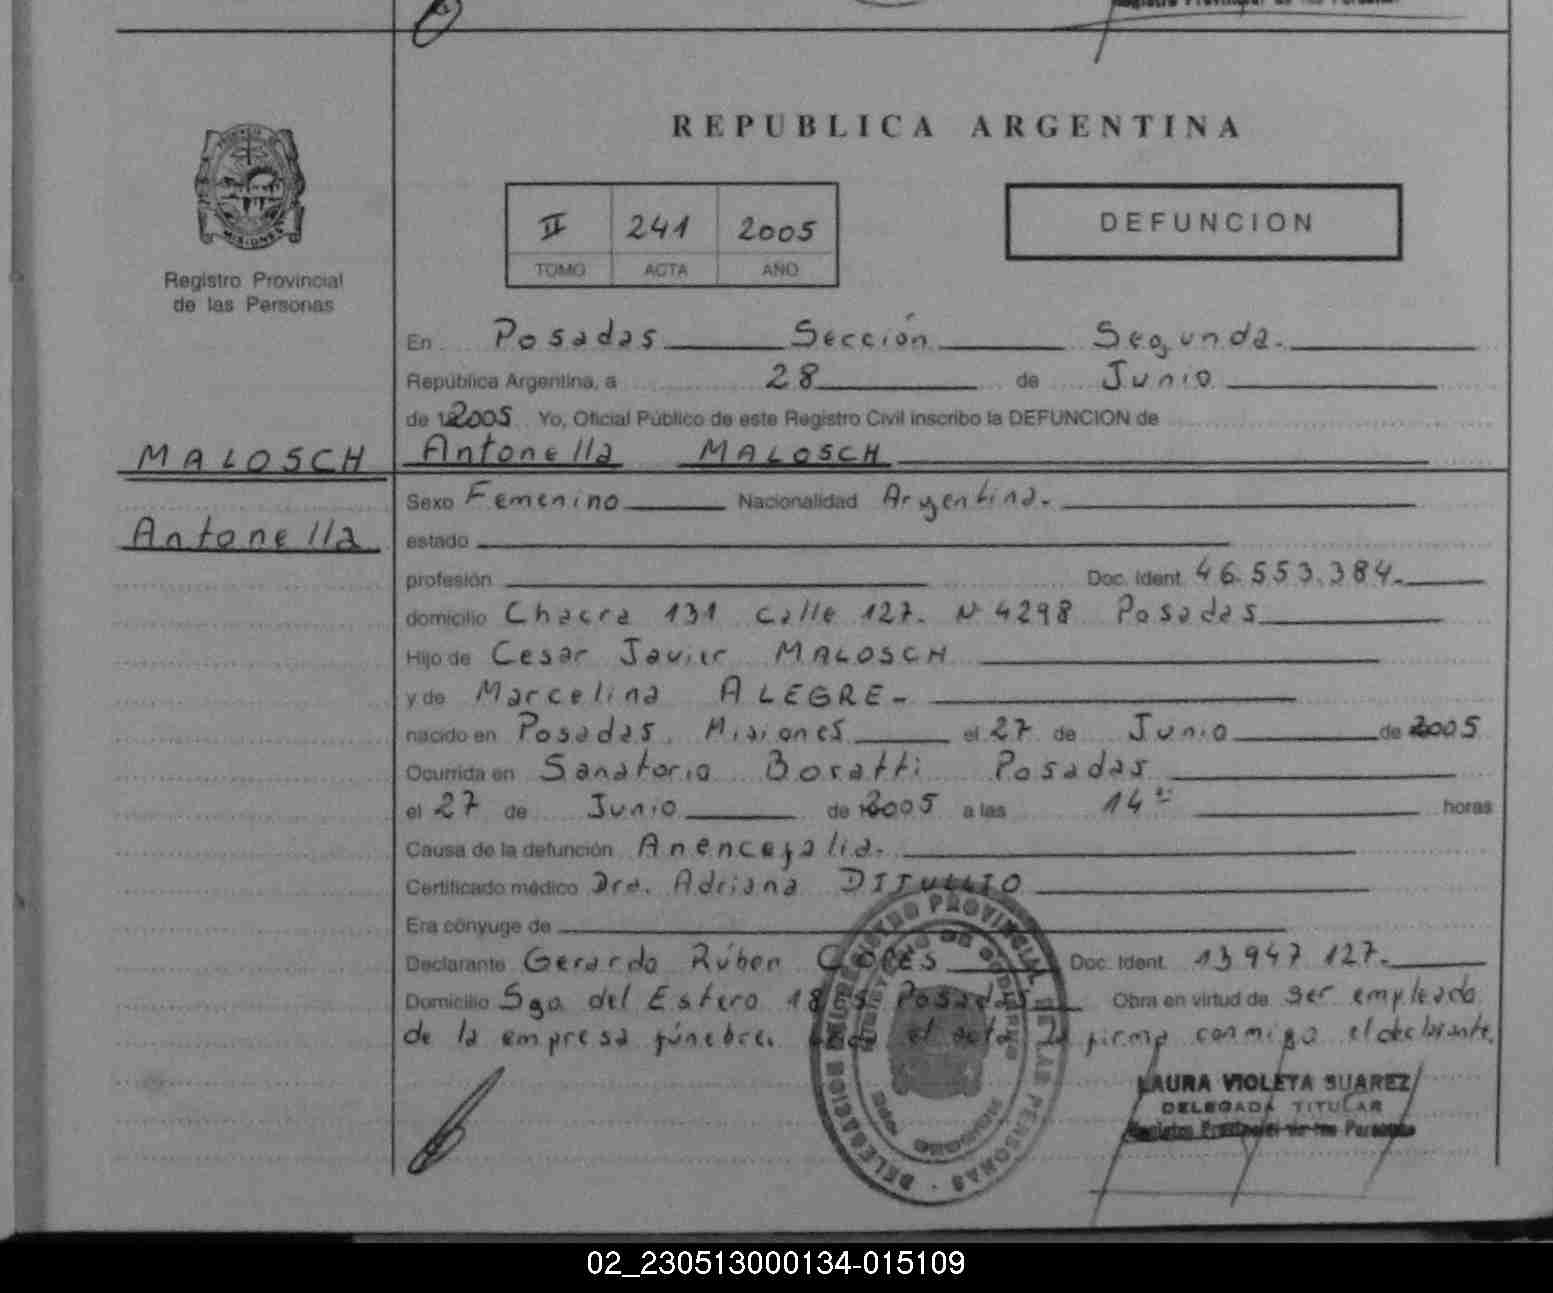 REPUBLICA ARGENTINA
MISIONES
Registro Provincial
de las Personas
II 241 2005
TOMO ACTA AÑO
DEFUNCION
En Posadas Sección Segunda.
República Argentina, a 28 de Junio
de 2005. Yo, Oficial Público de este Registro Civil inscribo la DEFUNCION de
MALOSCH Antonella MALOSCH
Antonella
Sexo Femenino Nacionalidad Argentina.
estado
profesión Doc. Ident. 46.553.384.
domicilio Chacra 131 calle 127. N 4298 Posadas
Hijo de Cesar Javier MALOSCH
y de Marcelina ALEGRE-
nacido en Posadas. Misiones el 27 de Junio de 2005
Ocurrida en Sanatorio Boratti Posadas
el 27 de Junio de 2005 a las 14 horas
Causa de la defunción Anencefalia.
Certificado médico Dra. Adriana DITULLIO
Era cónyuge de
Declarante Gerardo Rúben Doc. Ident. 13947 127.
Domicilio Sgo. del Estero Posadas Obra en virtud de ser empleado
de la empresa fúnebre. el acta la firma conmigo el declarante.
DELEGACION REGISTRO PROVINCIAL DE LAS PERSONAS
LAURA VIOLETA SUAREZ
DELEGADA TITULAR
Registro Provincial de las Personas
02_230513000134-015109